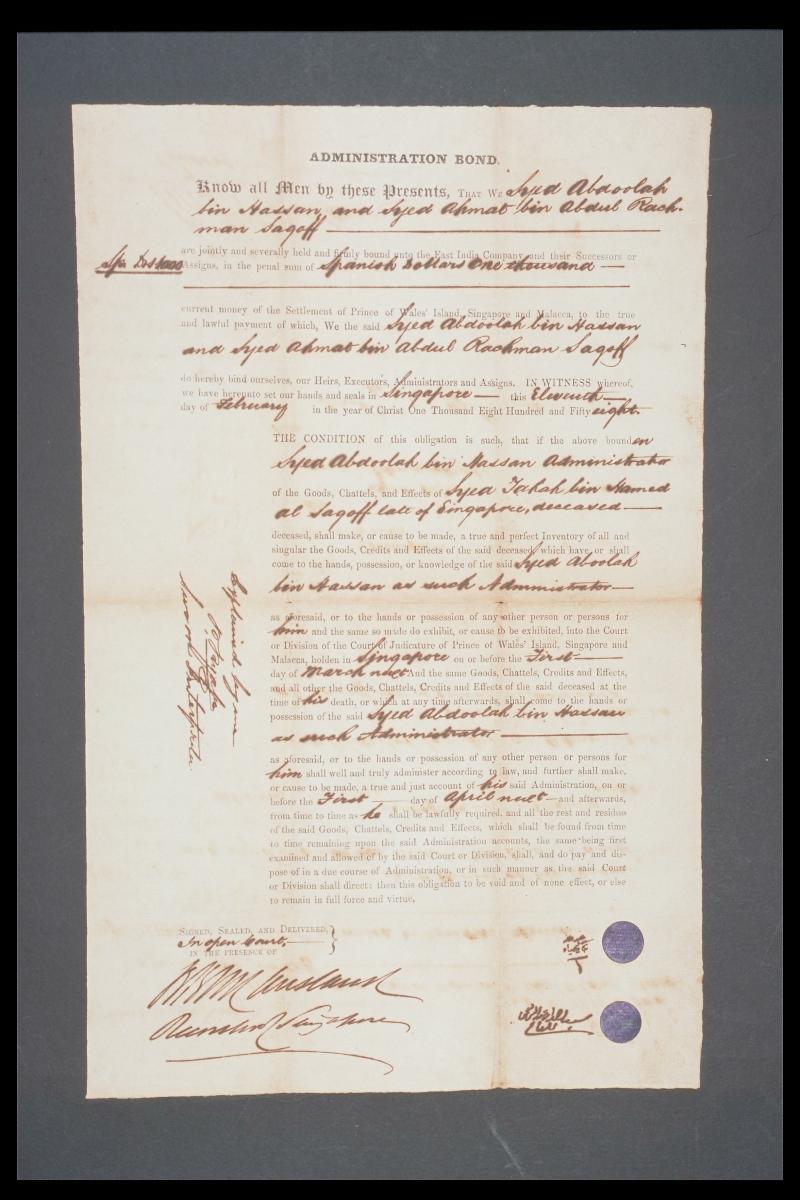 ADMINISTRATION BOND.
Know all Men by these Presents, THAT WE Syed Abdoolah
bin Hassan, and Syed Ahmat bin Abdul Rach-
man Sagoff
are jointly and severally held and firmly bound unto the East India Company and their Successors or
Spa Drs 1000 Assigns, in the penal sum of Spanish Dollars One thousand
current money of the Settlement of Prince of Wales' Island, Singapore and Malacca, to the true
and lawful payment of which, We the said Syed Abdoolah bin Hassan
and Syed Ahmat bin Abdul Rachman Sagoff
do hereby bind ourselves, our Heirs, Executors, Administrators and Assigns. IN WITNESS whereof,
we have hereunto set our hands and seals in Singapore this Eleventh
day of February in the year of Christ One Thousand Eight Hundred and Fifty eight.
THE CONDITION of this obligation is such, that if the above bounden
Syed Abdoolah bin Hassan Administrator
of the Goods, Chattels, and Effects of Syed Tahah bin Hamed
al Sagoff late of Singapore, deceased
deceased, shall make, or cause to be made, a true and perfect Inventory of all and
singular the Goods, Credits and Effects of the said deceased, which have or shall
come to the hands, possession, or knowledge of the said Syed Aboolah
bin Hassan as such Administrator
as aforesaid, or to the hands or possession of any other person or persons for
him and the same so made do exhibit, or cause to be exhibited, into the Court
or Division of the Court of Judicature of Prince of Wales' Island, Singapore and
Malacca, holden in Singapore on or before the First
day of March next And the same Goods, Chattels, Credits and Effects,
and all other the Goods, Chattels, Credits and Effects of the said deceased at the
time of his death, or which at any time afterwards, shall come to the hands or
possession of the said Syed Abdoolah bin Hassan
as such Administrator
as aforesaid, or to the hands or possession of any other person or persons for
him shall well and truly administer according to law, and further shall make,
or cause to be made, a true and just account of his said Administration, on or
before the First day of April next and afterwards,
from time to time as he shall be lawfully required, and all the rest and residue
of the said Goods, Chattels, Credits and Effects, which shall be found from time
to time remaining upon the said Administration accounts, the same being first
examined and allowed of by the said Court or Division, shall, and do pay and dis-
pose of in a due course of Administration, or in such manner as the said Court
or Division shall direct: then this obligation to be void and of none effect, or else
to remain in full force and virtue.
Explained by me
Sworn Interpreter
SIGNED, SEALED, AND DELIVERED,
In open Court,
IN THE PRESENCE OF
Singapore